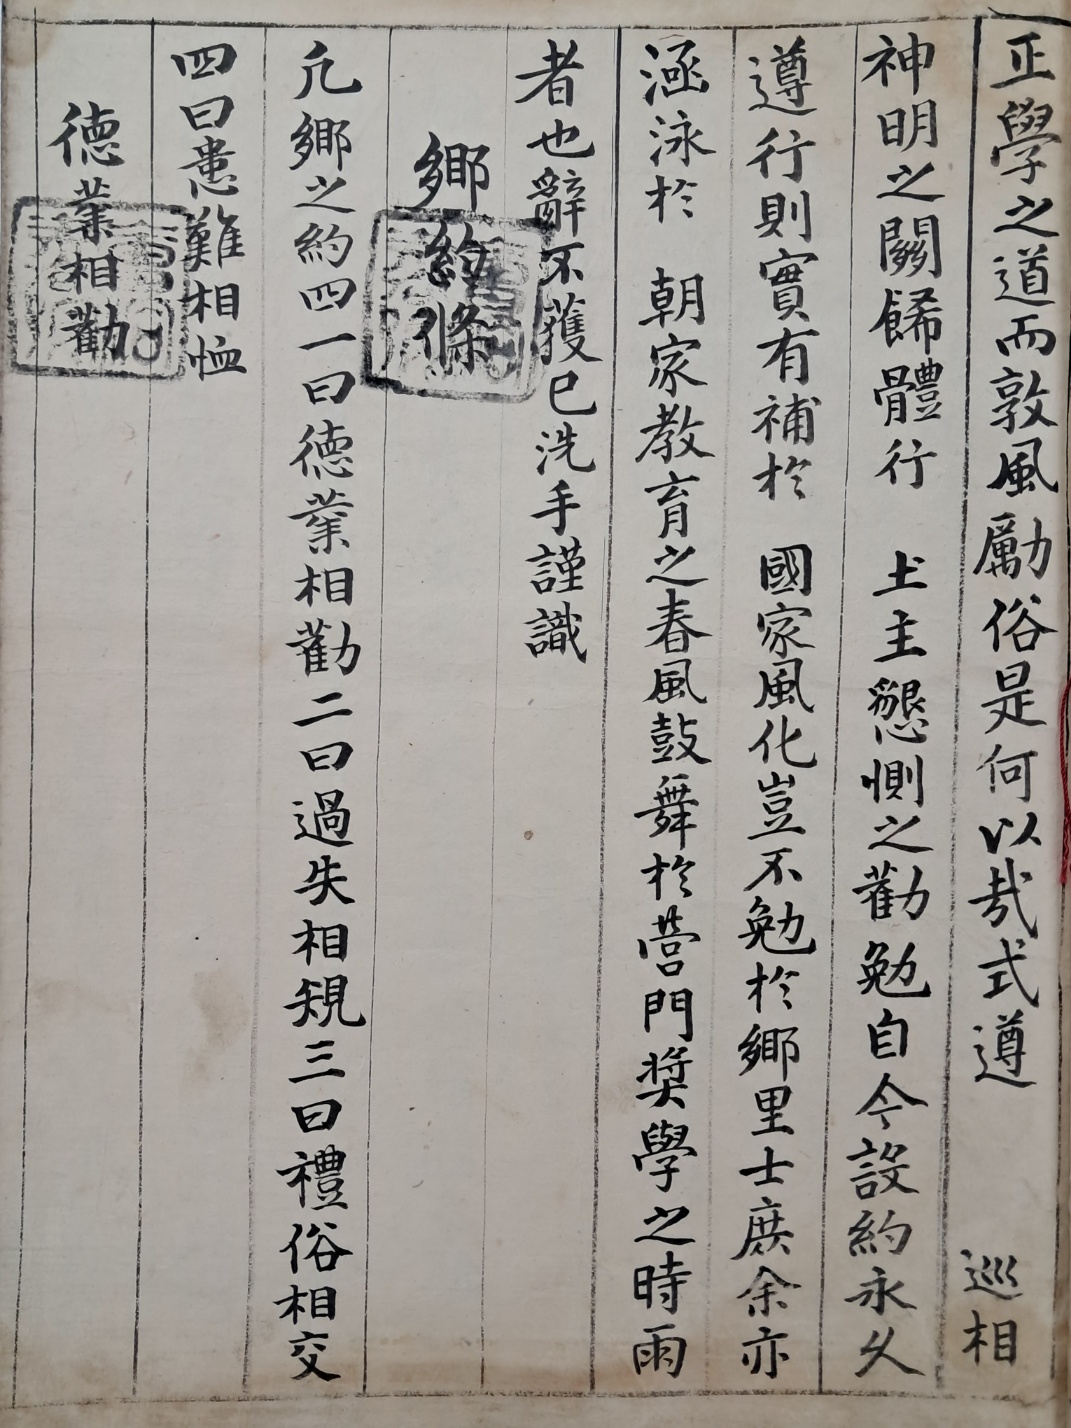 正學之道而敦風勵俗是何以哉式遵 巡相
神明之闕歸體行 土主懇惻之勸勉自今設約永久
遵行則實有補於 國家風化豈不勉於鄉里士庶余亦
涵泳於 朝家教育之春風鼓舞於營門奬學之時雨
者也辭不獲已洗手謹識
鄉約條
凡鄉之約四一曰德業相勸二曰過失相規三曰禮俗相交
四曰患難相恤
德業相勸